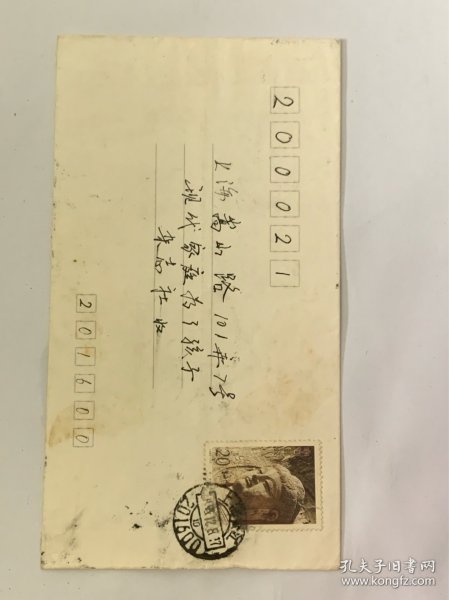 200021
上海嵩山路101弄7号
现代家庭为了孩子
杂志社收
201600
20
201600
孔夫子旧书网
www.kongfz.com